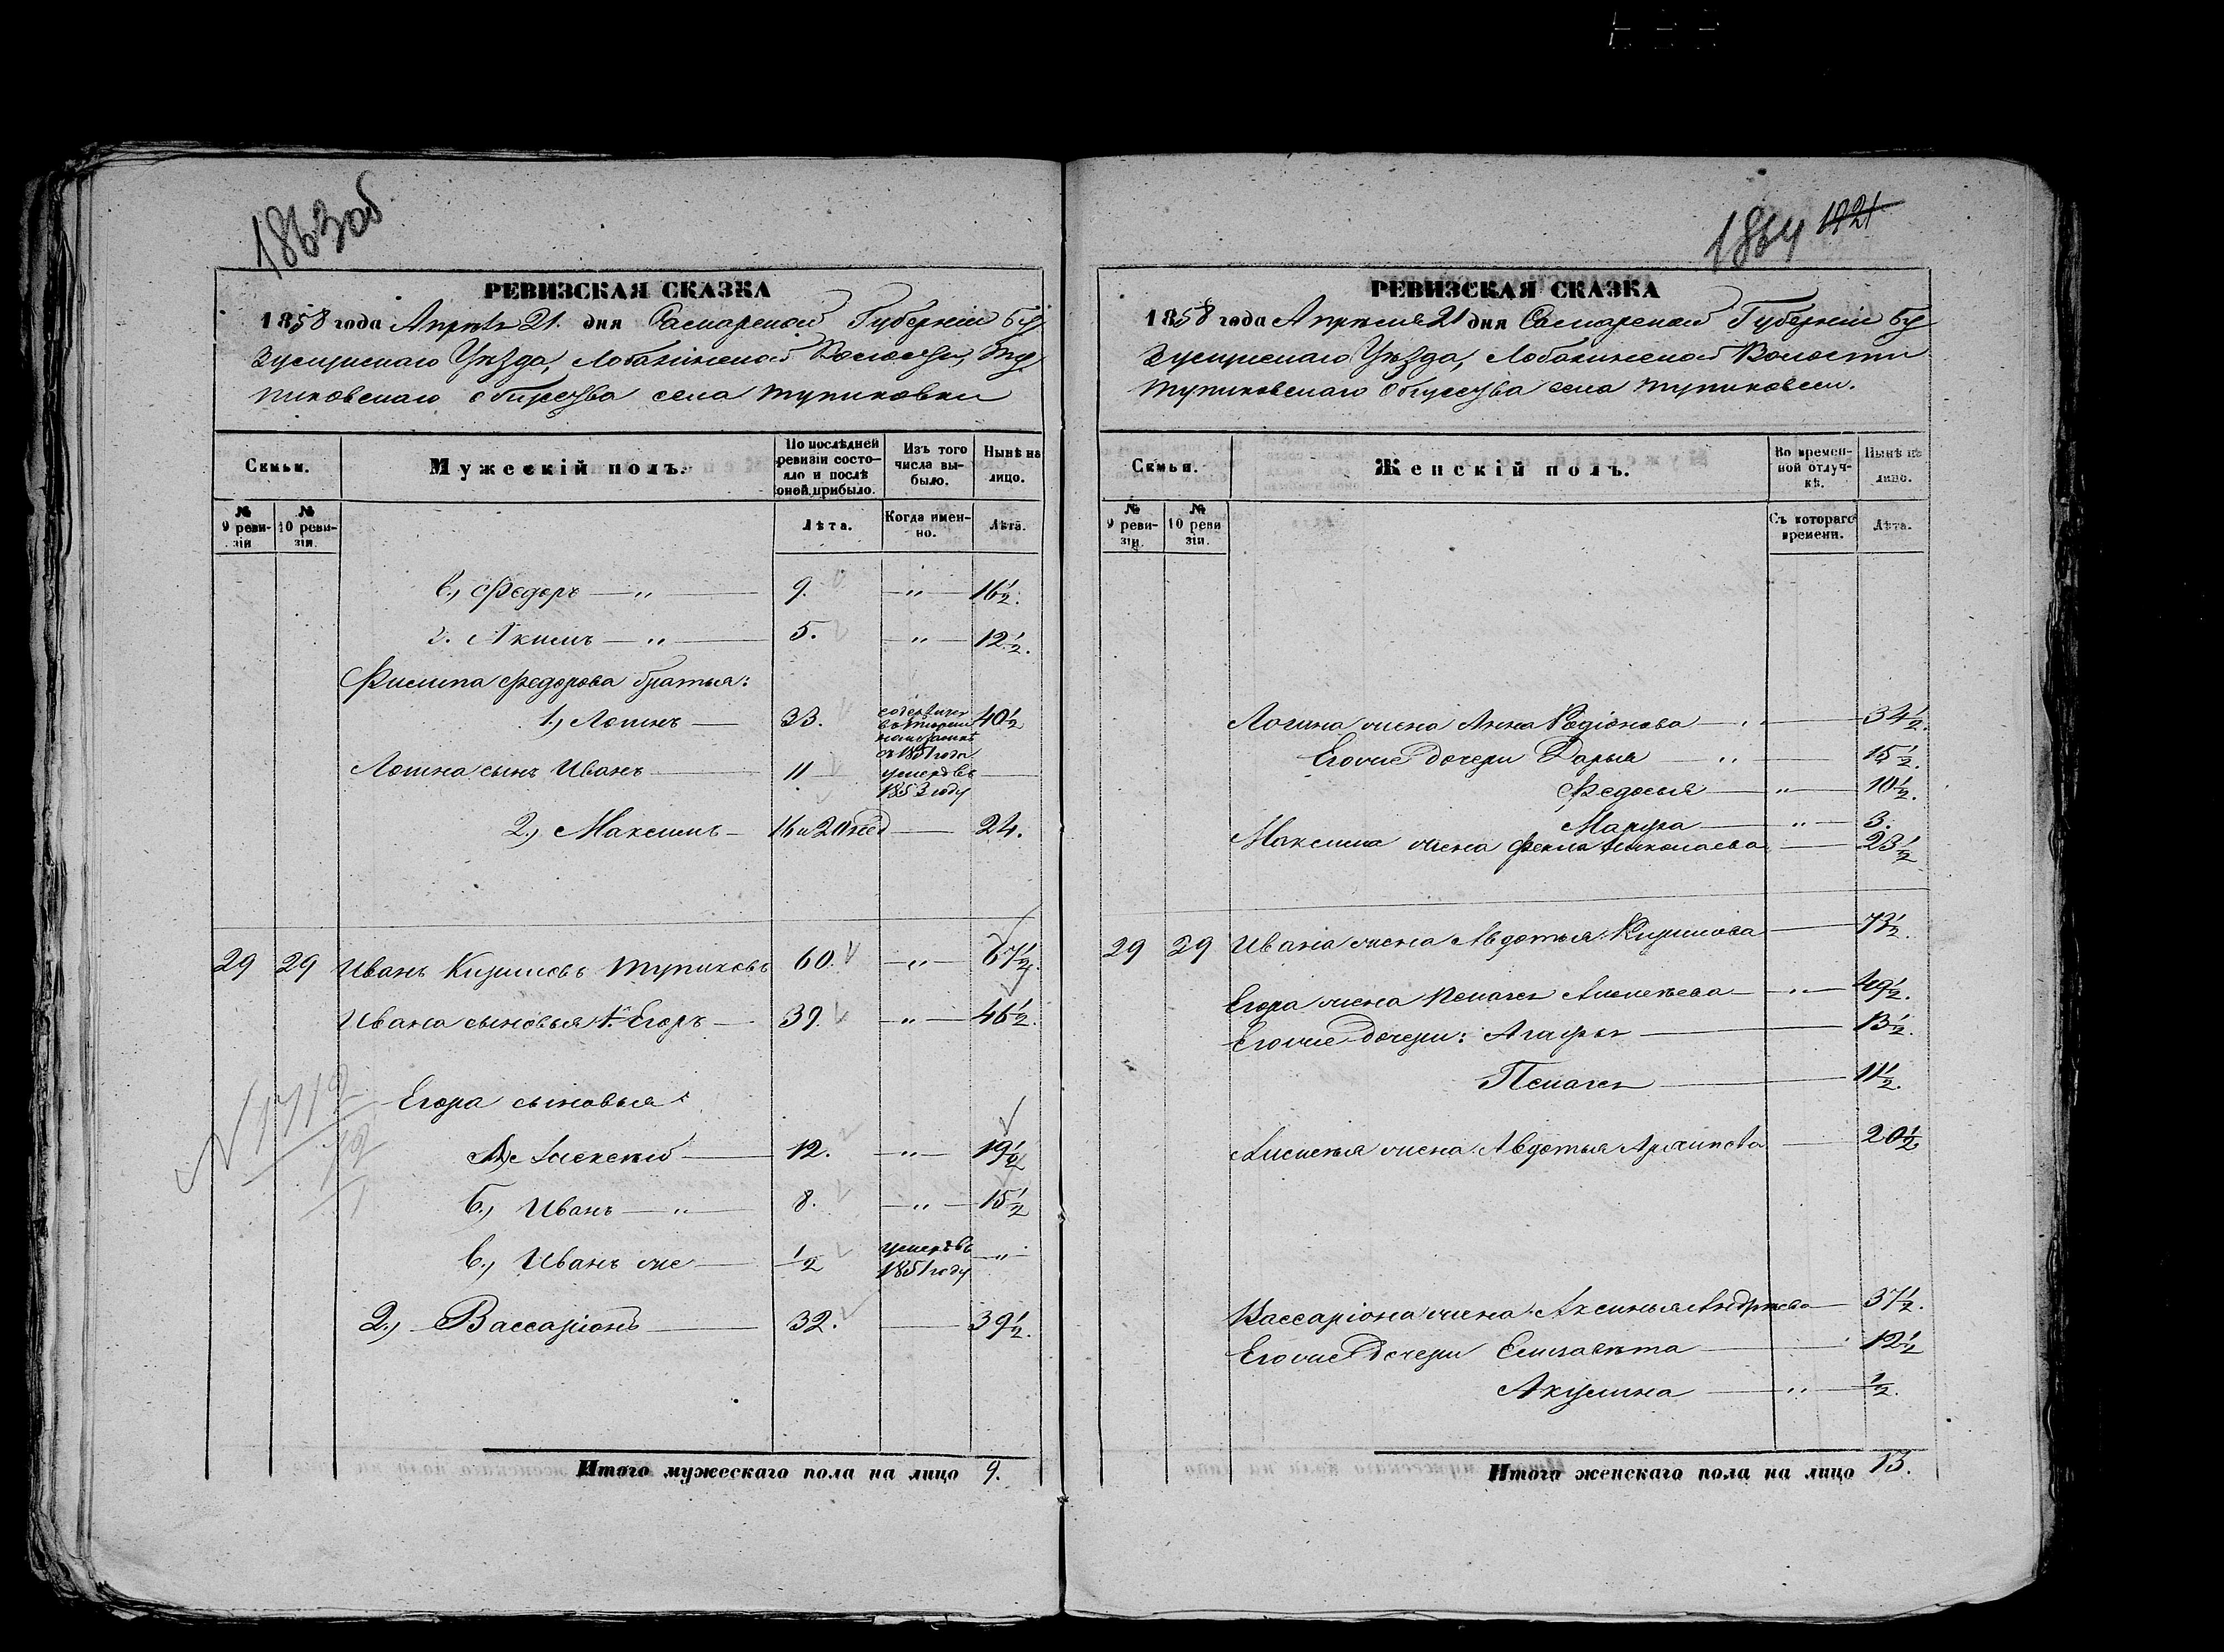 1863об
РЕВИЗСКАЯ СКАЗКА
1858 года Апрѣля 21. дня Самарской Губерніи Бу
зулускаго Уѣзда, Лобакинской Волости, Ту
пиковскаго общества села Тупиковки
Семьи.
Мужескій полъ.
По послѣдней ревизіи состояло и послѣ оной прибыло.
Изъ того числа выбыло.
Нынѣ на лицо.
№ 9 ревизіи
№ 10 ревизіи.
Лѣта.
Когда именно.
Лѣта.
в., Федоръ — „ — 9. — „ — 16½.
г. Акимъ — „ — 5. — „ — 12½.
Филипа Федорова братья:
1., Логинъ — 33. содержится
въ тюремн 40½
съ 1851 года
Логина сынъ Иванъ — 11 умеръ въ —
1853 году
2., Максимъ — 16 и 20 нед — 24.
29 29 Иванъ Кириловъ Тупиковъ 60. — „ — 67½.
Ивана сыновья 1. Егоръ — 39. — „ — 46½.
Егора сыновья:
Алексей — 12. — „ — 19½
б., Иванъ — „ — 8. — „ — 15½
в., Иванъ же — ½ умеръ въ — „ —
1851 году
2., Вассаріонъ — 32. — 39½.
Итого мужескаго пола на лицо 9.
1864 1721
РЕВИЗСКАЯ СКАЗКА
1858 года Апрѣля 21 дня Самарской Губерніи Бу
зулускаго Уѣзда, Лобакинской Волости
Тупиковскаго Общества села Тупиковки.
Семьи.
Женскій полъ.
Во временной отлучкѣ.
Нынѣ на лицо.
№ 9 ревизіи.
№ 10 ревизіи.
Съ котораго времени.
Лѣта.
Логина жена Анна Родіонова — „ — 34½.
Его же дочери Дарья — „ — 15½.
Федосья — „ — 10½.
Марфа — „ — 3.
Максима жена Фекла Николаева — 23½
29 29 Ивана жена Авдотья Кирилова — 73½.
Егора жена Пелагея Алексѣева — „ — 49½.
Его же дочери: Агафья — 13½.
Пелагея — 11½.
Алексѣя жена Авдотья Архипова — 20½
Вассаріона жена Аксинья Андрѣева — 37½.
Его же дочери Елизавѣта — 12½
Акулина — „ — ½.
Итого женскаго пола на лицо 13.